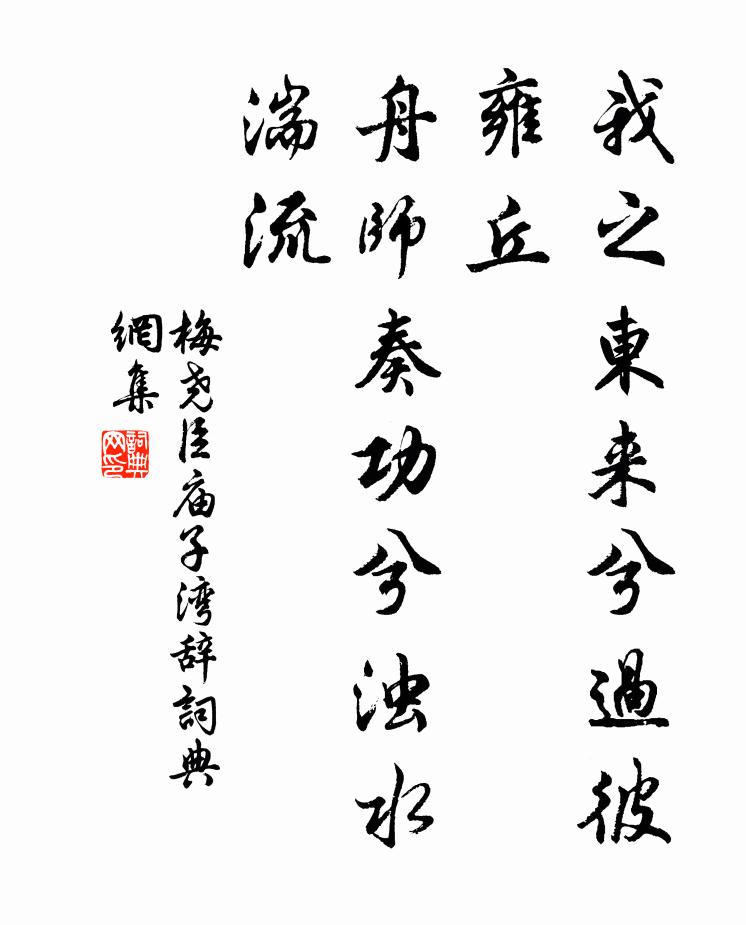 我之東来兮過彼
雍丘
舟師奏功兮浊水
湍流
梅尧臣庙子湾辞詞典
網集
詞典
网印